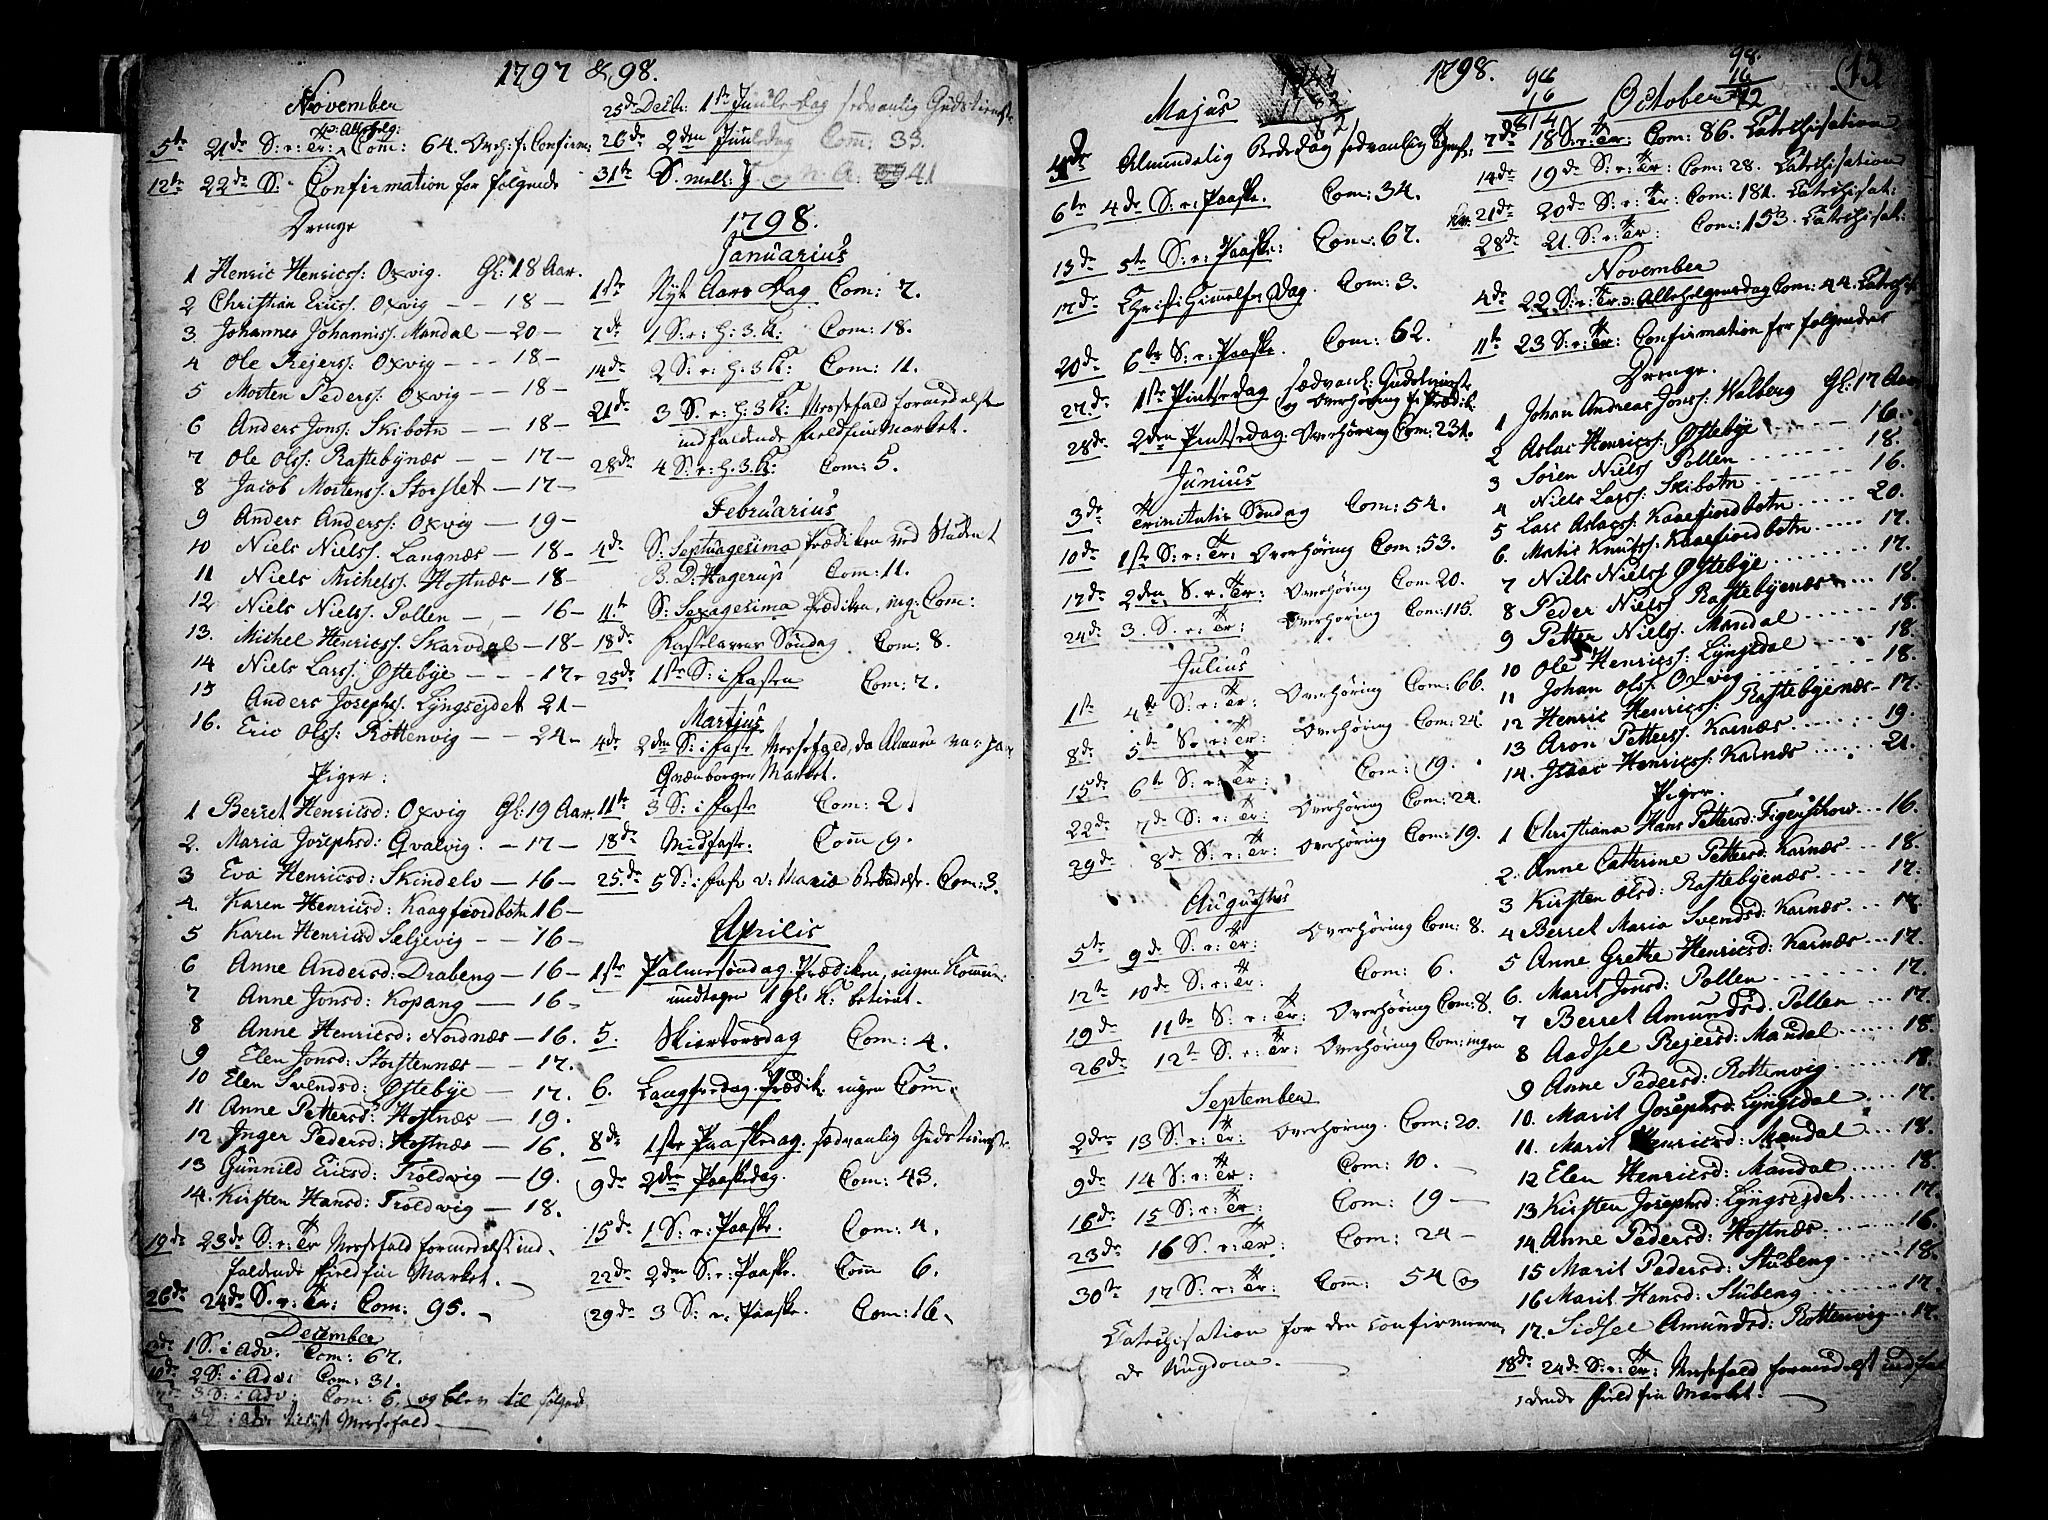 1797 & 98.
November
5te 21de S: e: Tr: Allehelg: Com: 64. Overh: f. Confirm:
12te 22de S: Confirmation for følgende
Drenge
1 Henric Henricss: Oxvig. Gl: 18 Aar.
2 Christian Ericss: Oxvig - - 18 -
3 Johannes Johanniss: Mandal - 20 -
4 Ole Rejerss: Oxvig - - 18 -
5 Morten Pederss: Oxvig - - 18 -
6 Anders Jonss: Skibotn - - 18 -
7 Ole Olss: Rastebynæs - - 17 -
8 Jacob Mortenss: Storslet - 17 -
9 Anders Anderss: Oxvig - 19 -
10 Niels Nielss. Langnæs - 18 -
11 Niels Michelss. Hostnæs - 18 -
12 Niels Nielss. Pollen - - 16 -
13. Michel Henricss: Skarvdal - 18 -
14 Niels Larss: Østebye - - - 17 -
15 Anders Josephss. Lyngseydet 21 -
16. Eric Olss: Rottenvig - - 24 -
Piger:
1 Berret Henricsd: Oxvig Gl: 19 Aar.
2. Maria Josephsd: Qvalvig. - 17 -
3 Eva Henricsd: Skindelv - 16 -
4. Karen Henricsd: Kaagfiordbotn 16 -
5 Karen Henricsd Sæljevig - - 16 -
6 Anne Andersd: Drabeng - 16 -
7 Anne Jonsd: Kopang - 16 -
8 Anne Henricsd: Nordnæs - 16.
9 Elen Jonsd: Storstennæs - - 17.
10 Elen Svendsd: Østebye - 17.
11 Anne Pettersd: Hostnæs - 19.
12 Inger Pedersd: Hostnæs - 16.
13 Gunnild Ericsd: Troldvig - 19.
14. Kirsten Hansd: Troldvig - 18.
19de 23de S: e: Tr Messefald formedelst ind-
faldende field fin Market.
26de 24de S. e: Tr: Com: 95.
December
3de 1 S: i Adv. Com: 67.
10de 2 S: i Adv: Com: 31.
3 S: i Adv: Com: 6. og
4 S: i Adv Messefald
25de Decbr: 1ste Juule-Dag sedvanlig Gudstieneste
26de 2den Juuledag Com: 33.
31te S. mell: J. og N. A: 41
1798.
Januarius
1ste Nyt Aars Dag Com: 7.
7de 1 S: e: H: 3 K: Com: 18.
14de 2 S: e: H: 3 K: Com: 11.
21de 3 S: e: H: 3 K: Messefald formedelst
indfaldende fieldfin Market.
28de 4 S: e: H: 3 K: Com: 5.
Februarius
4de S: Septuagesima, Prædiken ved Student
B. D: Hagerup, Com: 11.
11te S: Sexagesima Prædiken, ing: Com:
18de Fastelavens Søndag Com: 8.
25de 1ste S: i Fasten Com: 7.
Martjus
4de 2den S: i Faste Messefald, da Almuen var paa
Qvænborgen Market.
11te 3 S: i Faste Com: 21
18de Midfaste. Com 9.
25de 5 S: i Faste v: Mariæ Bebudelse. Com: 3.
Aprilis
1ste Palmesøndag. Prædiken, ingen Commun:
undtagen 1 gl: K: betient.
5. Skiertorsdag Com: 4.
6. Langfredag. Prædik: ingen Com:
8de 1ste Paaskedag. sedvanlig Gudstieneste.
9de 2den Paaskedag. Com: 43.
15de 1 S: e: Paaske. Com: 4.
22de 2den S: e: Paaske. Com 6.
29de 3 S: e: Paaske. Com: 16.
1798.
15
Majus
4de Almindelig Bededag sedvanlig
6te 4de S: e: Paaske. Com: 34.
13de 5te S: e: Paaske: Com: 67.
17de Christi Himmelfes Dag. Com: 3.
20de 6te S: e: Paaske. Com: 62.
27de 1ste Pintsedag sædvanl: Gudstieneste
og Overhøring
28de 2den Pintsedag. Overhøring Com: 231.
Junius
3de Trinitatis Søndag Com: 54.
10de 1ste S: e: Tr: Overhøring Com: 53.
17de 2den S. e. Tr: Overhøring Com 20.
24de 3. S. e: Tr: Overhøring Com: 115.
Julius
1ste 4de S: e: Tr: Overhøring Com: 66.
8de 5te S: e: Tr: Overhøring Com: 24
15de 6te S: e: Tr: Com: 19.
22de 7de S: e: Tr: Overhøring Com: 24.
29de 8de S: e: Tr: Overhøring Com: 19.
Augustus
5te 9de S: e: Tr: Overhøring Com: 8.
12te 10de S: e: Tr: Com: 6.
19de 11te S: e: Tr: Overhøring Com: 8.
26de 12te S. e: Tr: Overhøring Com: ingen
September
2den 13 S: e: Tr: Overhøring. Com: 20.
9de 14 S: e: Tr: Com: 10.
16de 15 S: e: Tr: Com: 19 -
23de 16 S. e: Tr: Com: 24 -
30te 17 S: e: Tr: Com: 54 og
Catechisation for den confirmeren-
de Ungdom.
96
16
614
98.
16
October
7de 18 S: e: Tr: Com: 86. Catechisation
14de 19de S: e: Tr: Com: 28. Catechisation
21de 20de S: e: Tr: Com: 181. Catechisat:
28de 21. S: e: Tr: Com: 153. Catechisat:
November
4de 22 S: e: Tr: Allehelgensdag Com: 44. Catechis:
11te 23 S: e: Tr: Confirmation for følgende
Drenge.
1 Johan Andreas Jonss: Walberg Gl: 17 Aar
2 Aslac Henricss: Østebye - 16.
3 Søren Nielss Pollen ....... 18.
4 Niels Larss: Skibotn ....... 16.
5 Lars Aslagss: Kaaefiordbotn ..... 20.
6. Matis Knutss: Kaaefiordbotn ..... 17.
7 Niels Nielss Østebye ........ 17.
8 Peder Nielss. Rastebyenæs .... 18.
9 Petter Nielss. Mandal ...... 18.
10 Ole Henricss: Lyngsdal ...... 18.
11 Johan Olss. Oxvig ........ 18.
12 Henric Henricss: Rastebyenæs - 17.
13 Aron Petterss. Karnæs ...... 19.
14. Isaac Henricss: Karnæs ..... 21.
Piger.
1 Christiana Hans Pettersd: Figenschow ... 16.
2. Anne Cathrine Pettersd: Karnæs ... 18.
3 Kirsten Olsd: Rastebyenæs .... 17.
4 Berret Maria Svendsd: Karnæs ... 17
5 Anne Grethe Henricsd: Karnæs ... 17.
6. Marit Jonsd: Pollen ....... 17.
7 Berret Amundsd. Pollen ... 17.
8 Aadsel Rejersd: Mandal ...... 18.
9 Anne Pedersd: Rottenvig ...... 18.
10. Marit Josephsd: Lyngsdal .... 17.
11. Marit Henricsd: Mandal ..... 18.
12 Elen Henricsd: Mandal ..... 18.
13 Kirsten Josephsd: Lyngseydet ..... 17.
14 Anne Pedersd: Hostnæs ...... 16.
15 Marit Pedersd: Stubeng ..... 18.
16 Marit Hansd: Stubeng ...... 17.
17. Sidsel Amundsd: Rottenvig ... 17.
18de 24de S: e: Tr: Messefald formedelst indfal
dende field fin Market.